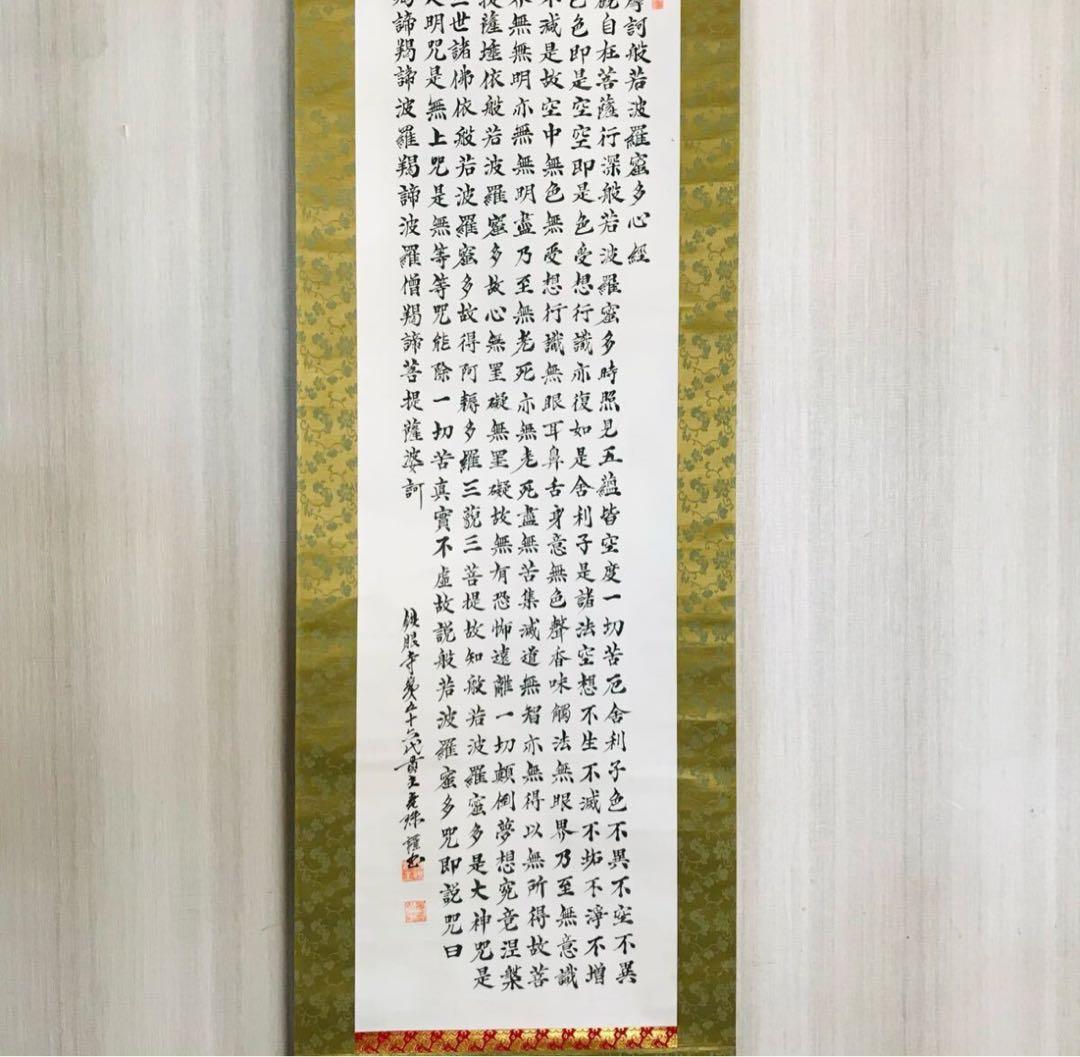 摩訶般若波羅蜜多心經
觀自在菩薩行深般若波羅蜜多時照見五蘊皆空度一切苦厄舍利子色不異不空不異
色即是空空即是色受想行識亦復如是舍利子是諸法空想不生不滅不垢不淨不增
不減是故空中無色無受想行識無眼耳鼻舌身意無色聲香味觸法無眼界乃至無意識
界無無明亦無無明盡乃至無老死亦無老死盡無苦集滅道無智亦無得以無所得故菩
提薩埵依般若波羅蜜多故心無罣礙無罣礙故無有恐怖遠離一切顛倒夢想究竟涅槃
三世諸佛依般若波羅蜜多故得阿耨多羅三藐三菩提故知般若波羅蜜多是大神咒是
大明咒是無上咒是無等等咒能除一切苦真實不虛故說般若波羅蜜多咒即説咒曰
羯諦羯諦波羅羯諦波羅僧羯諦菩提薩婆訶
鉄眼寺第五十六代貫主 謹書